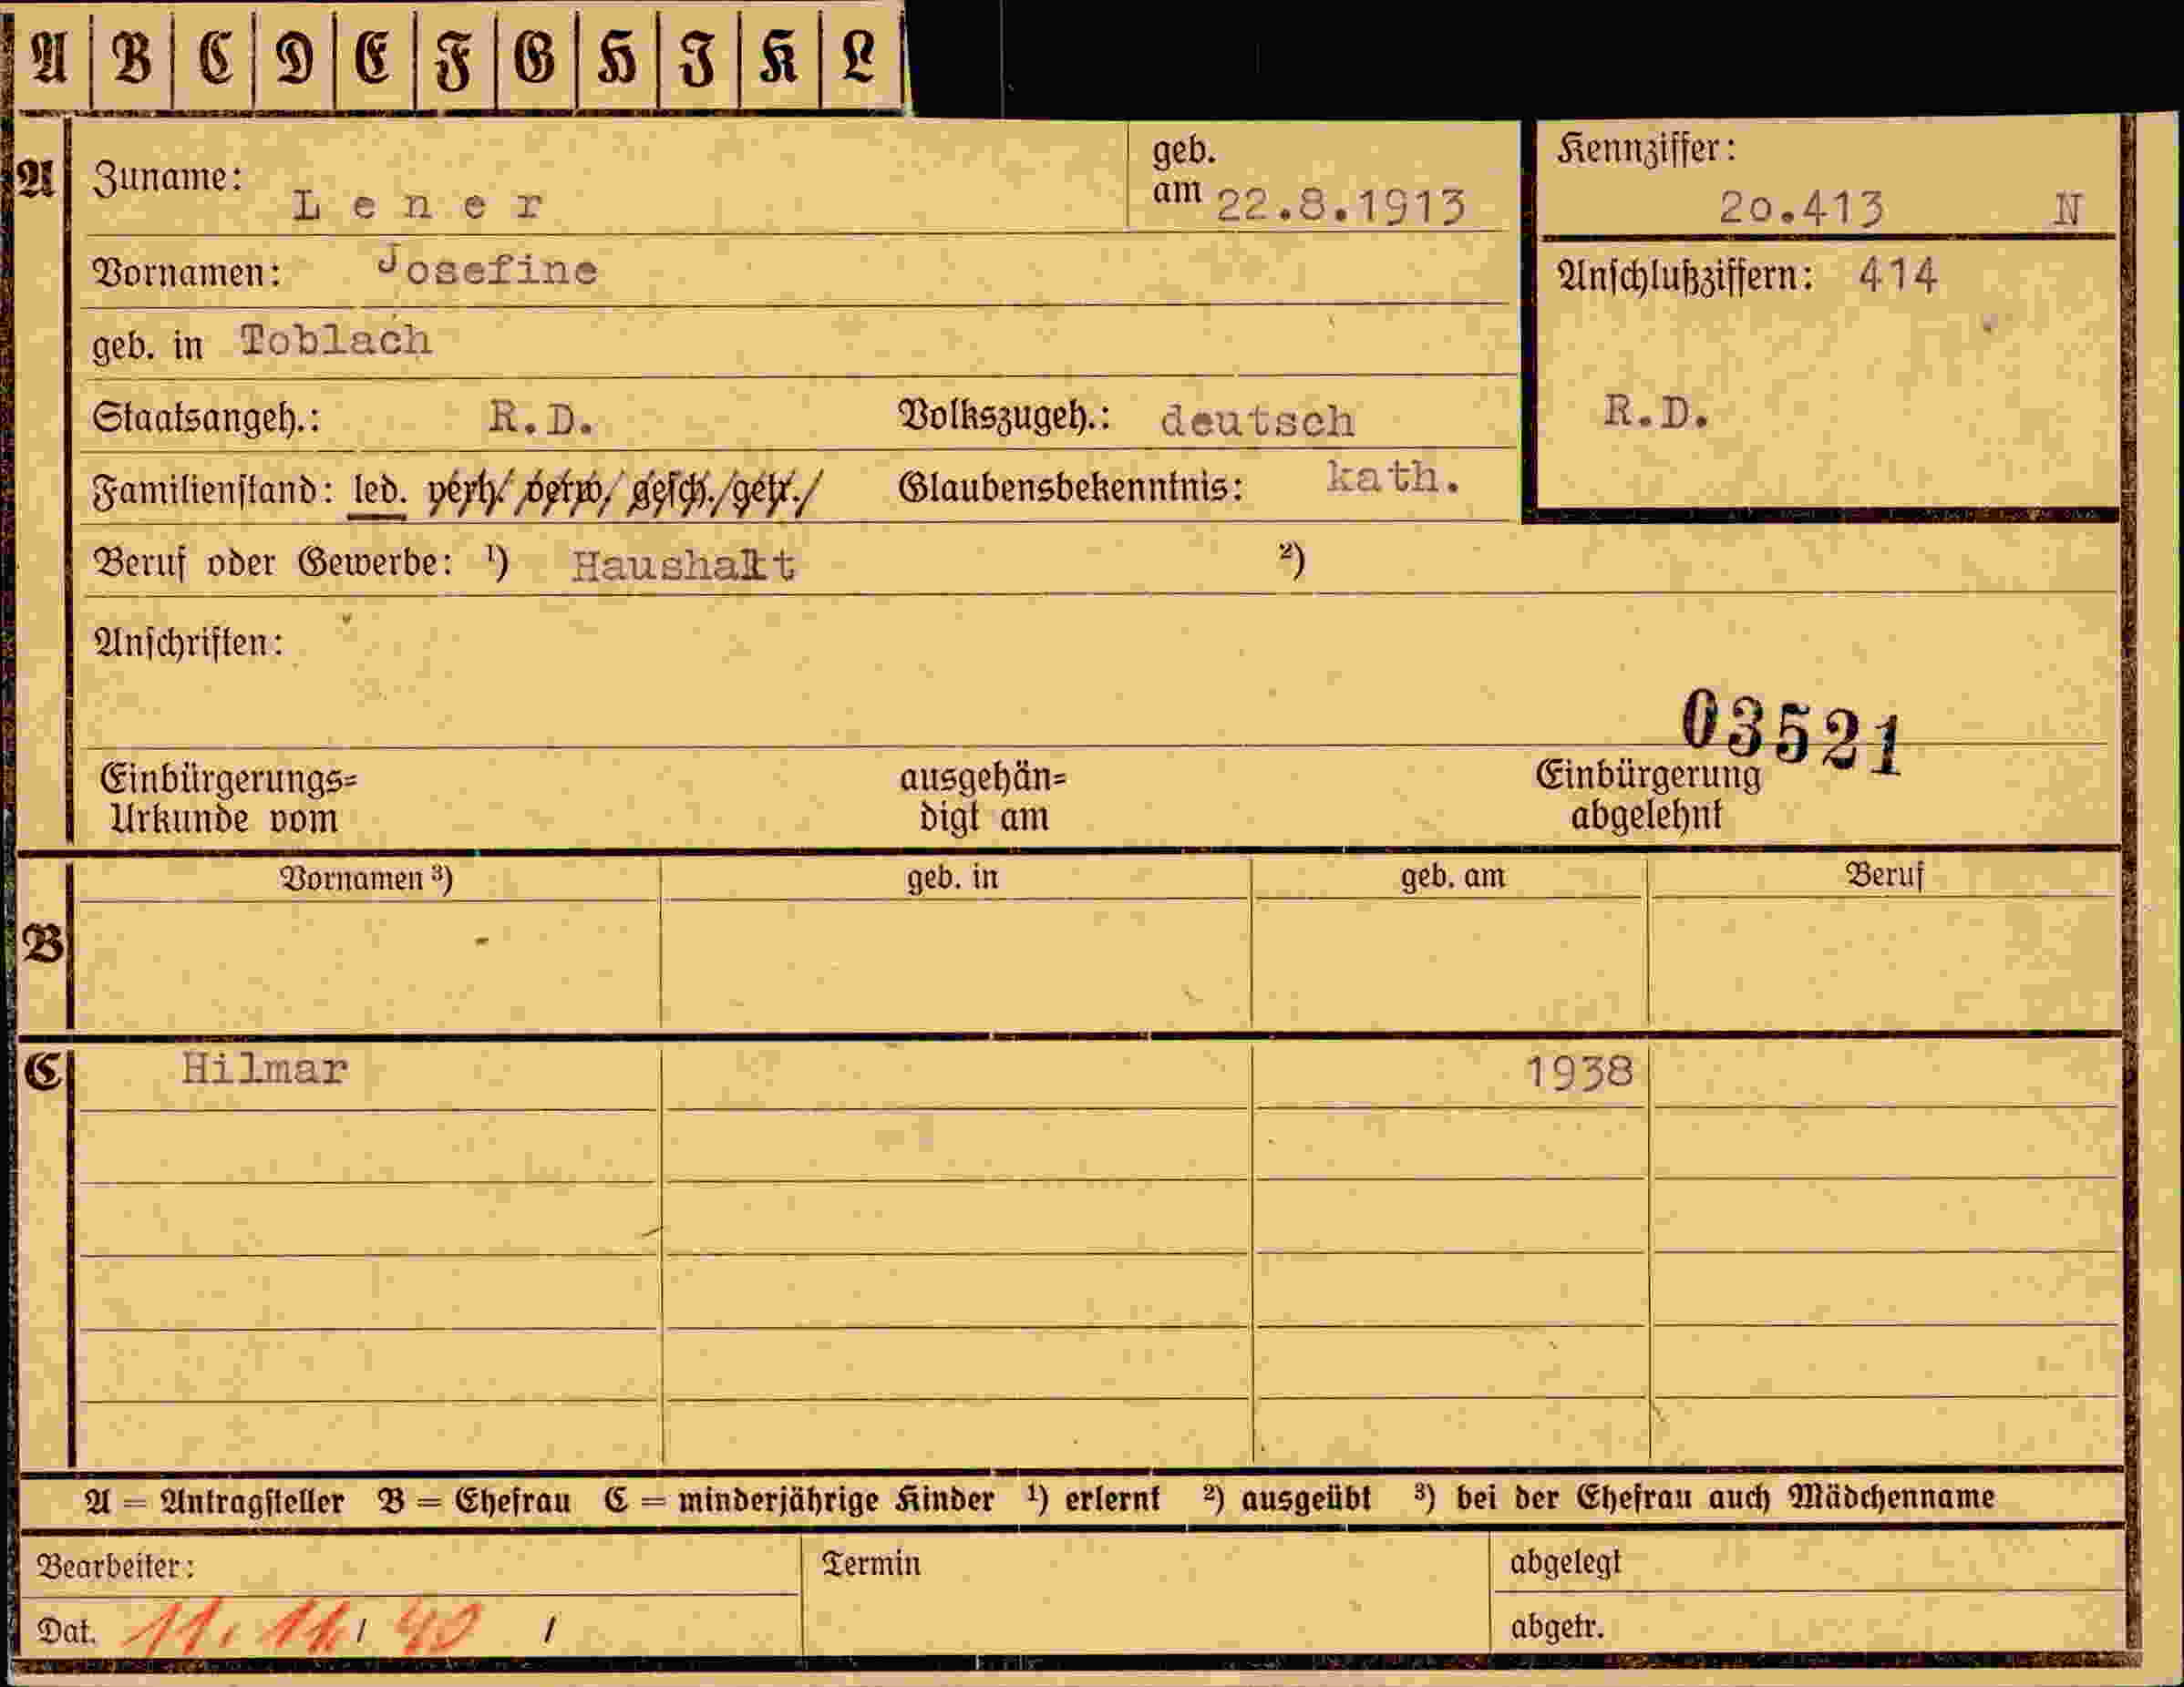 A B C D E F G H I K L
A Zuname: Lener geb. am 22.8.1913 Kennziffer: 20.413 N
Vornamen: Josefine Anschlußziffern: 414
geb. in Toblach
Staatsangeh.: R.D. Volkszugeh.: deutsch R.D.
Familienstand: led. verh./ verw./ gesch./getr./ Glaubensbekenntnis: kath.
Beruf oder Gewerbe: ¹) Haushalt ²)
Anschriften:
03521
Einbürgerungs= ausgehän= Einbürgerung
Urkunde vom digt am abgelehnt
Vornamen ³) geb. in geb. am Beruf
B
C Hilmar 1938
A = Antragsteller B = Ehefrau C = minderjährige Kinder ¹) erlernt ²) ausgeübt ³) bei der Ehefrau auch Mädchenname
Bearbeiter: Termin abgelegt
Dat. abgetr.